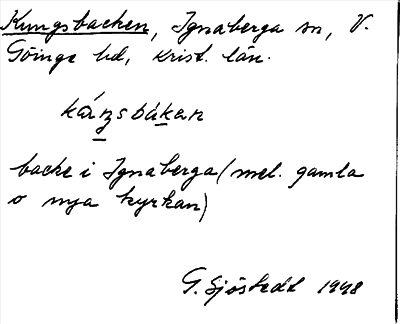 Kungsbacken, Ignaberga sn, V.
Göinge hd, Krist. län.
kåŋsbákan
backe i Ignaberga (mel. gamla
o nya kyrkan)
G. Sjöstedt 1948